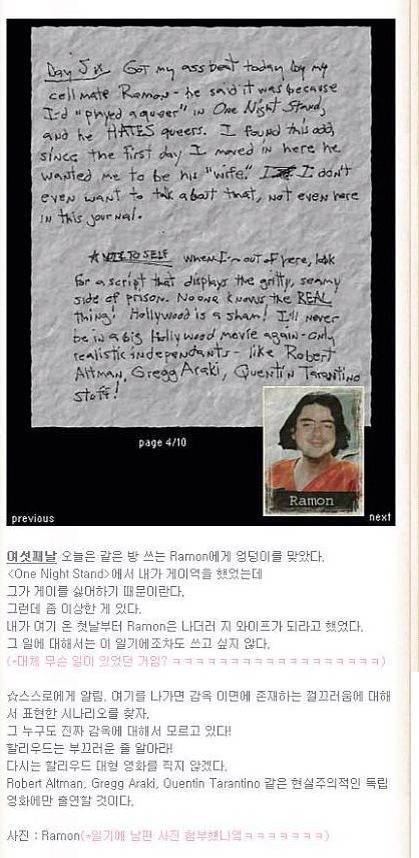 Day Six Got my ass beat today by my
cell mate Ramon - he said it was because
I'd "played a queer" in One Night Stand,
and he HATES queers. I found this odd,
since the first day I moved in here he
wanted me to be his "wife." I I don't
even want to talk about that, not even here
in this journal.
☆NOTE TO SELF when I'm out of here, look
for a script that displays the gritty, seamy
side of prison. No one knows the REAL
thing! Hollywood is a sham! I'll never
be in a big Hollywood movie again - only
realistic independants - like Robert
Altman, Gregg Araki, Quentin Tarantino
stuff!
Ramon
page 4/10
previous
next
여섯째날 오늘은 같은 방 쓰는 Ramon에게 엉덩이를 맞았다.
<One Night Stand>에서 내가 게이역을 했었는데
그가 게이를 싫어하기 때문이란다.
그런데 좀 이상한 게 있다.
내가 여기 온 첫날부터 Ramon은 나더러 지 와이프가 되라고 했었다.
그 일에 대해서는 이 일기에조차도 쓰고 싶지 않다.
(*대체 무슨 일이 있었던 거임? ㅋㅋㅋㅋㅋㅋㅋㅋㅋㅋㅋㅋㅋㅋㅋㅋㅋㅋ)
☆스스로에게 알림. 여기를 나가면 감옥 이면에 존재하는 껄끄러움에 대해
서 표현한 시나리오를 찾자.
그 누구도 진짜 감옥에 대해서 모르고 있다!
할리우드는 부끄러운 줄 알아라!
다시는 할리우드 대형 영화를 찍지 않겠다.
Robert Altman, Gregg Araki, Quentin Tarantino 같은 현실주의적인 독립
영화에만 출연할 것이다.
사진 : Ramon(*일기에 남편 사진 첨부했나염ㅋㅋㅋㅋㅋㅋㅋ)